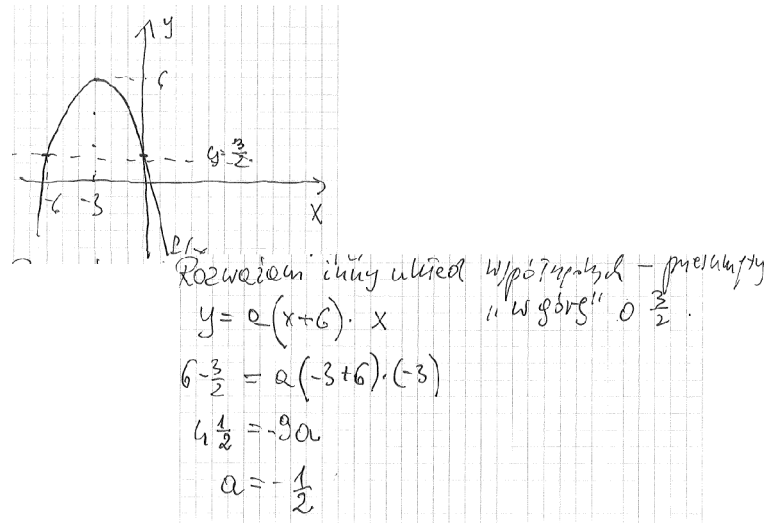 y
6
y=3/2
-6 -3
x
Rozważam inny układ współrzędnych – przesunięty
y = a(x+6)· x „w górę" o 3/2.
6-3/2 = a(-3+6)·(-3)
4 1/2 = -9a
a = - 1/2